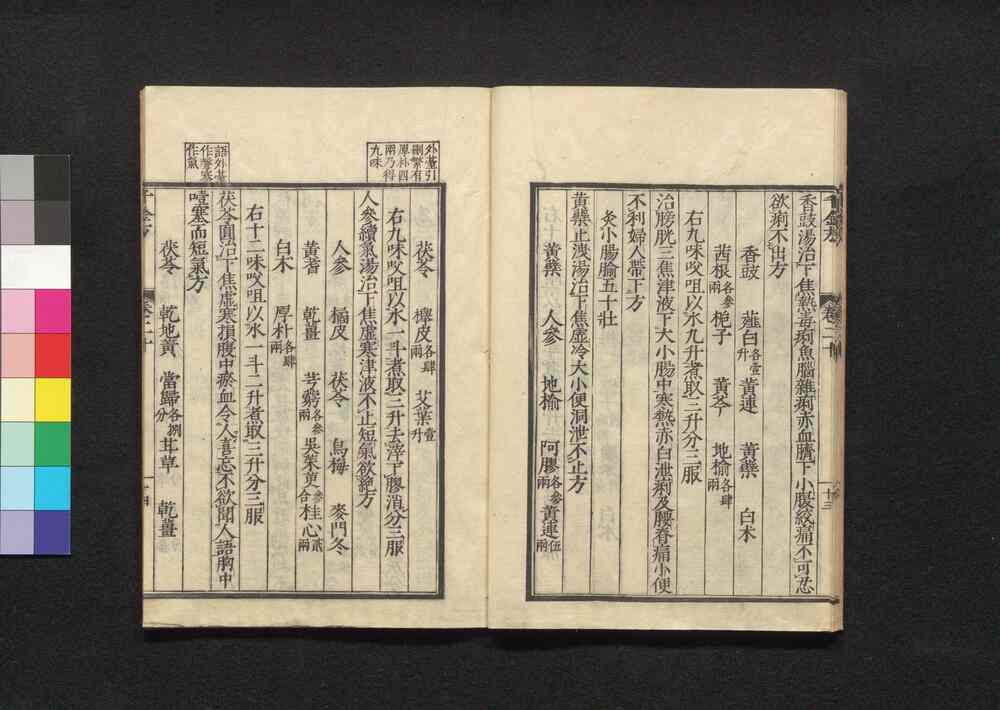 香豉湯治下焦熱毒痢魚腦雜痢赤血臍下小腹絞痛不可忍
欲痢不出方
香豉　薤白各壹升　黃連　黃蘗　白朮
茜根各參兩　梔子　黃芩　地榆各肆兩
右九味㕮咀以水九升煮取三升分三服
治膀胱三焦津液下大小腸中寒熱赤白泄痢及腰脊痛小便
不利婦人帶下方
灸小腸腧五十壯
黃蘗止洩湯治下焦虛冷大小便洞泄不止方
黃蘗　人參　地榆　阿膠各參兩　黃連伍兩
茯苓　樗皮各肆兩　艾葉壹升
右九味㕮咀以水一斗煮取三升去滓下膠消分三服
人參續氣湯治下焦虛寒津液不止短氣欲絕方
人參　橘皮　茯苓　烏梅　麥門冬
黃耆　乾薑　芎藭各參兩　吳茱萸參合　桂心貳兩
白朮　厚朴各肆兩
右十二味㕮咀以水一斗二升煮取三升分三服
茯苓圓治下焦虛寒損腹中瘀血令人喜忘不欲聞人語胸中
噎塞而短氣方
茯苓　乾地黃　當歸各捌分　甘草　乾薑
外臺引
刪繁有
厚朴四
兩乃得
九味
語外臺
作聲寒
作氣
千金方
卷二十
十三